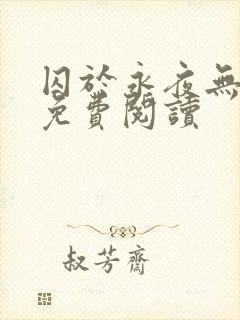 囚於永夜無
免費閱讀
叔芳齋